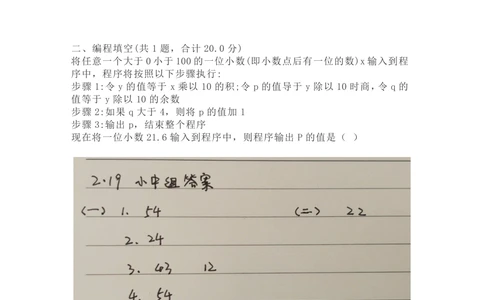 二、编程填空(共1题，合计20.0分)
将任意一个大于0小于100的一位小数(即小数点后有一位的数)x输入到程
序中，程序将按照以下步骤执行:
步骤1:令y的值等于x乘以10的积;令p的值导于y除以10时商,令q的
值等于y除以10的余数
步骤2:如果q大于4，则将p的值加1
步骤3:输出p，结束整个程序
现在将一位小数21.6输入到程序中，则程序输出P的值是（ ）
2.19 小中组答案
(一) 1. 54 (二) 22
2. 24
3. 43 12
4. 54